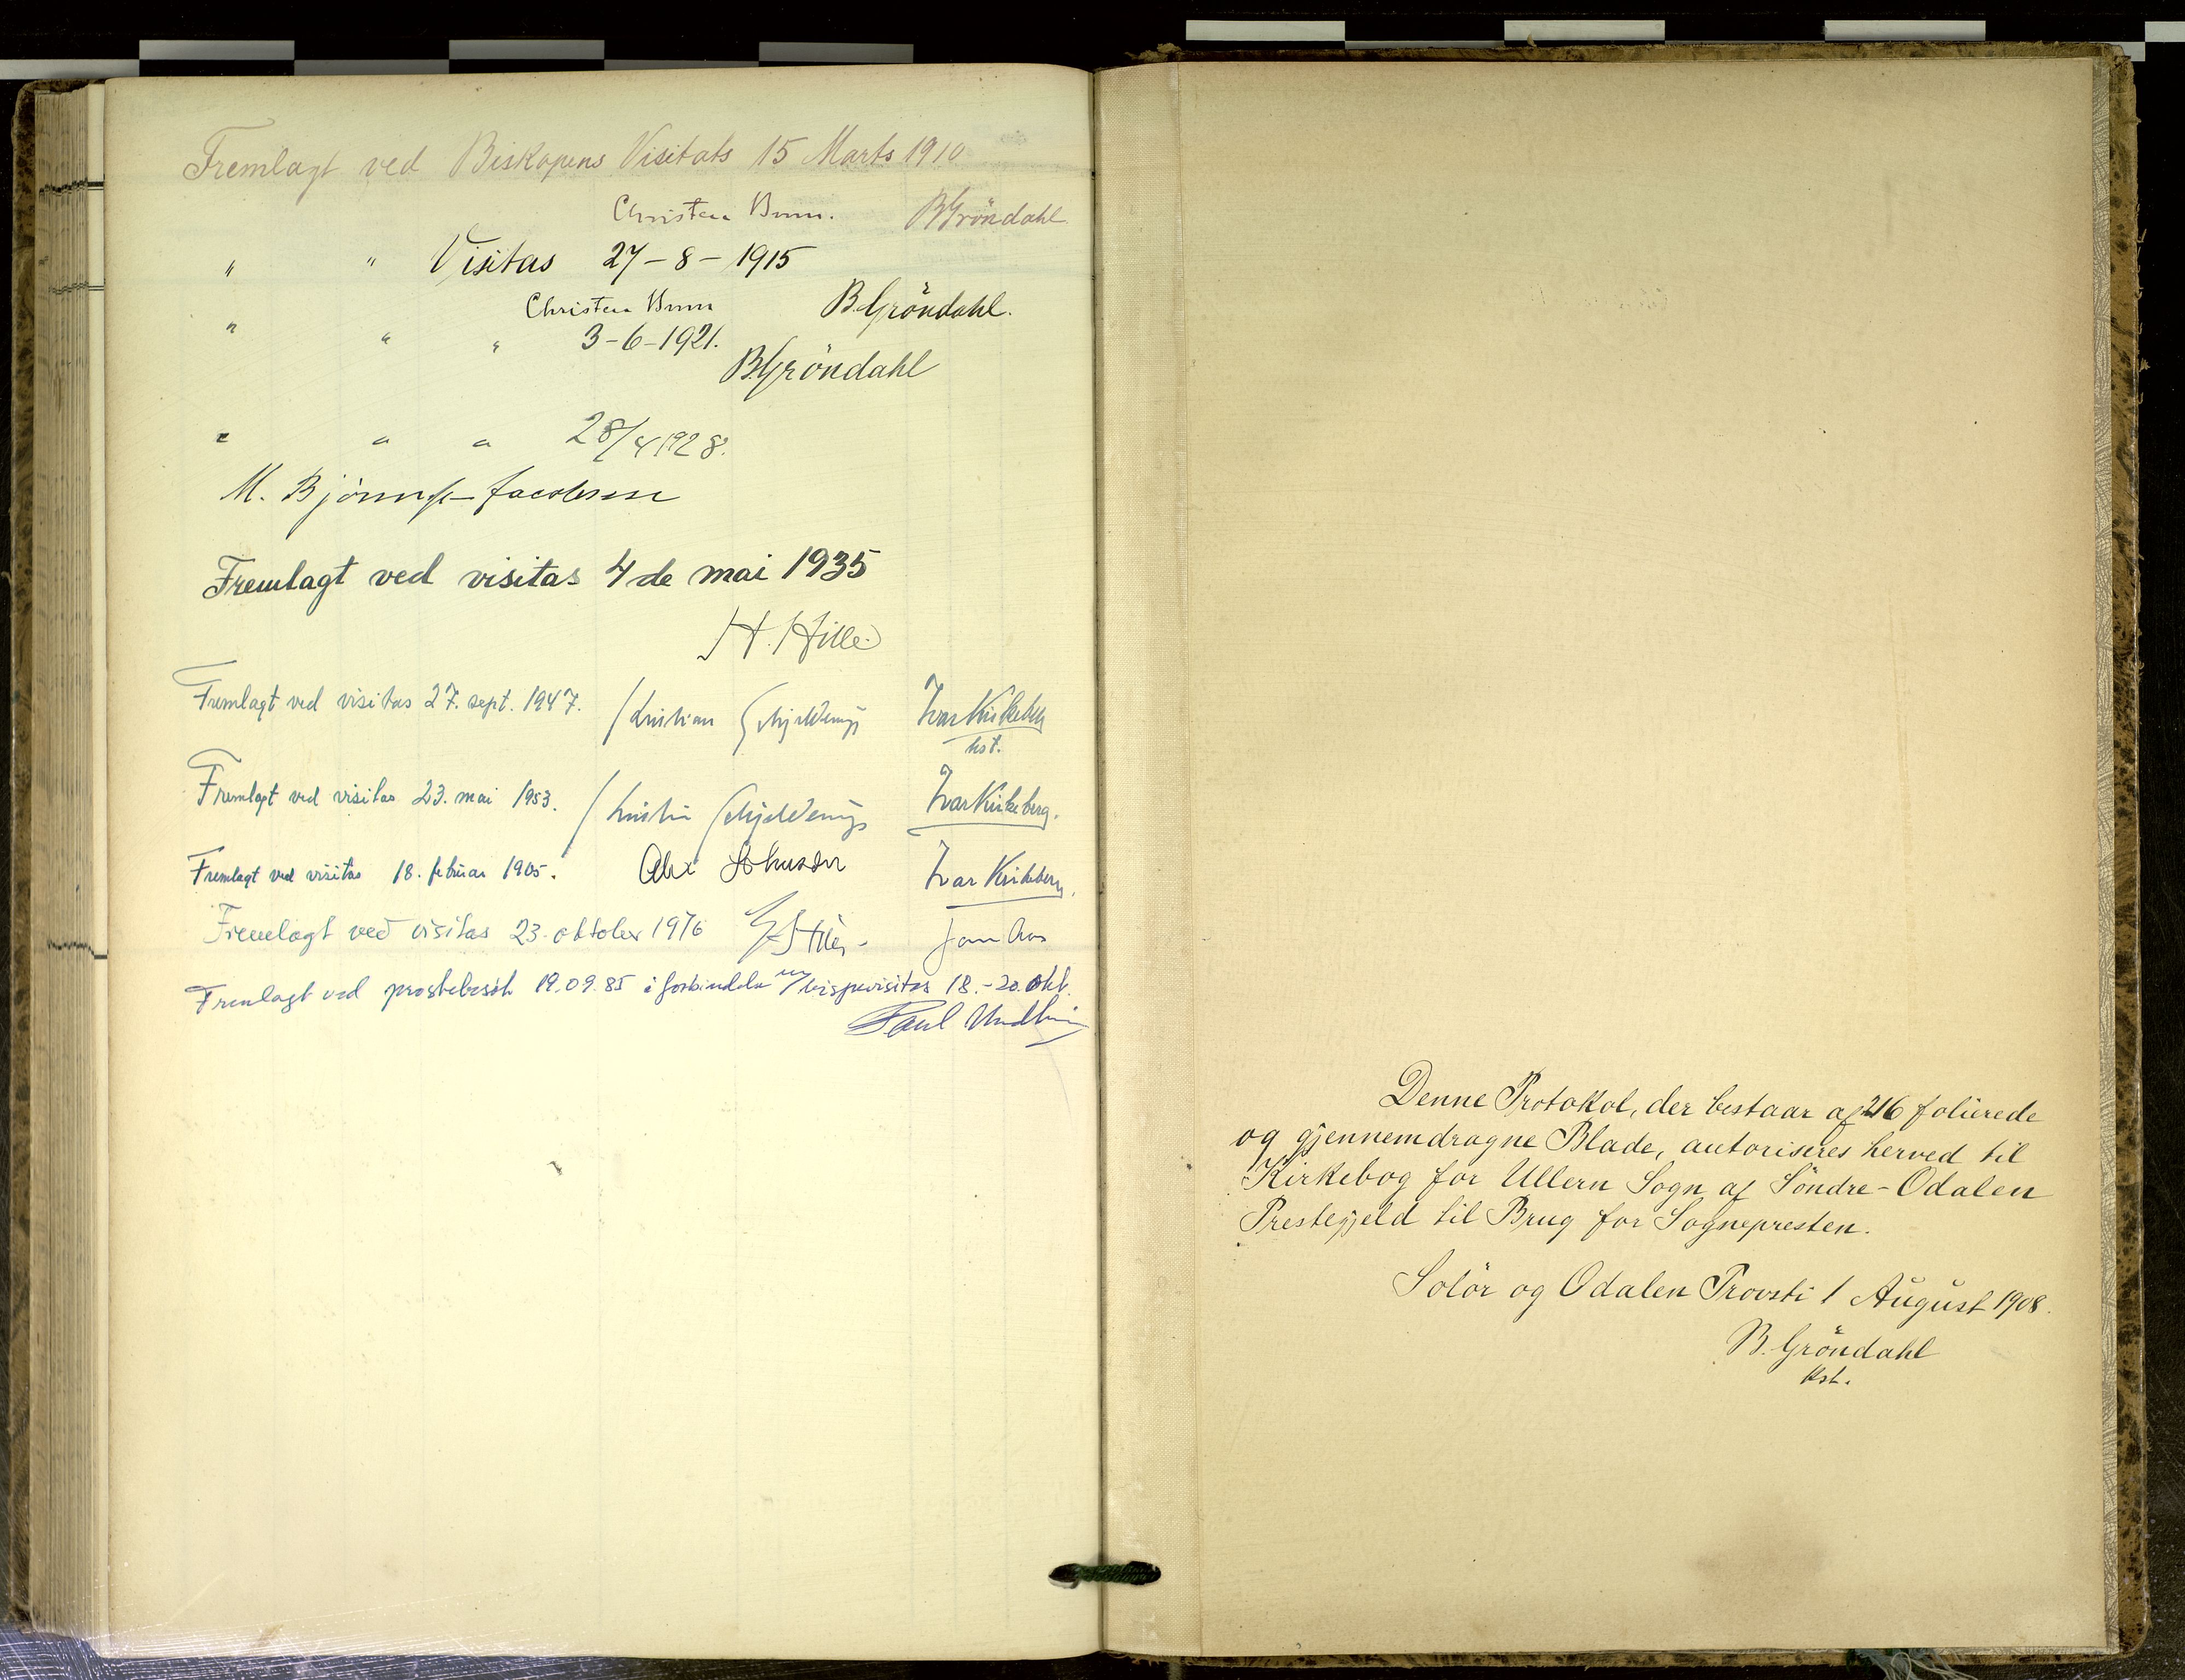 Fremlagt ved Biskopens Visitats 15 Marts 1910
Christen Brun. B Gröndahl
" " Visitas 27-8-1915
Christen Brun B. Gröndahl.
" " " 3-6-1921.
B. Gröndahl
" " " 28/4 1928.
M. Bjönness-Jacobsen
Fremlagt ved visitas 4de mai 1935
H. Hille
Fremlagt ved visitas 27. sept. 1947. Kristian Schjelderup Ivar Kirkeberg
kst.
Fremlagt ved visitas 23. mai 1953. Kristian Schjelderup Ivar Kirkeberg.
Fremlagt ved visitas 18. februar 1965. Alex Johnson Ivar Kirkeberg.
Fremlagt ved visitas 23. oktober 1976
Fremlagt ved prostebesøk 19.09.85 i forbindelse m/bispevisitas 18.-20. okt.
Paul
Denne Protokol, der bestaar af 216 folierede
og gjennemdragne Blade, autoriseres herved til
Kirkebog for Ullern Sogn af Söndre-Odalen
Prestegjeld til Brug for Sognepresten.
Solör og Odalen Provsti 1 August 1908.
B. Gröndahl
kst.